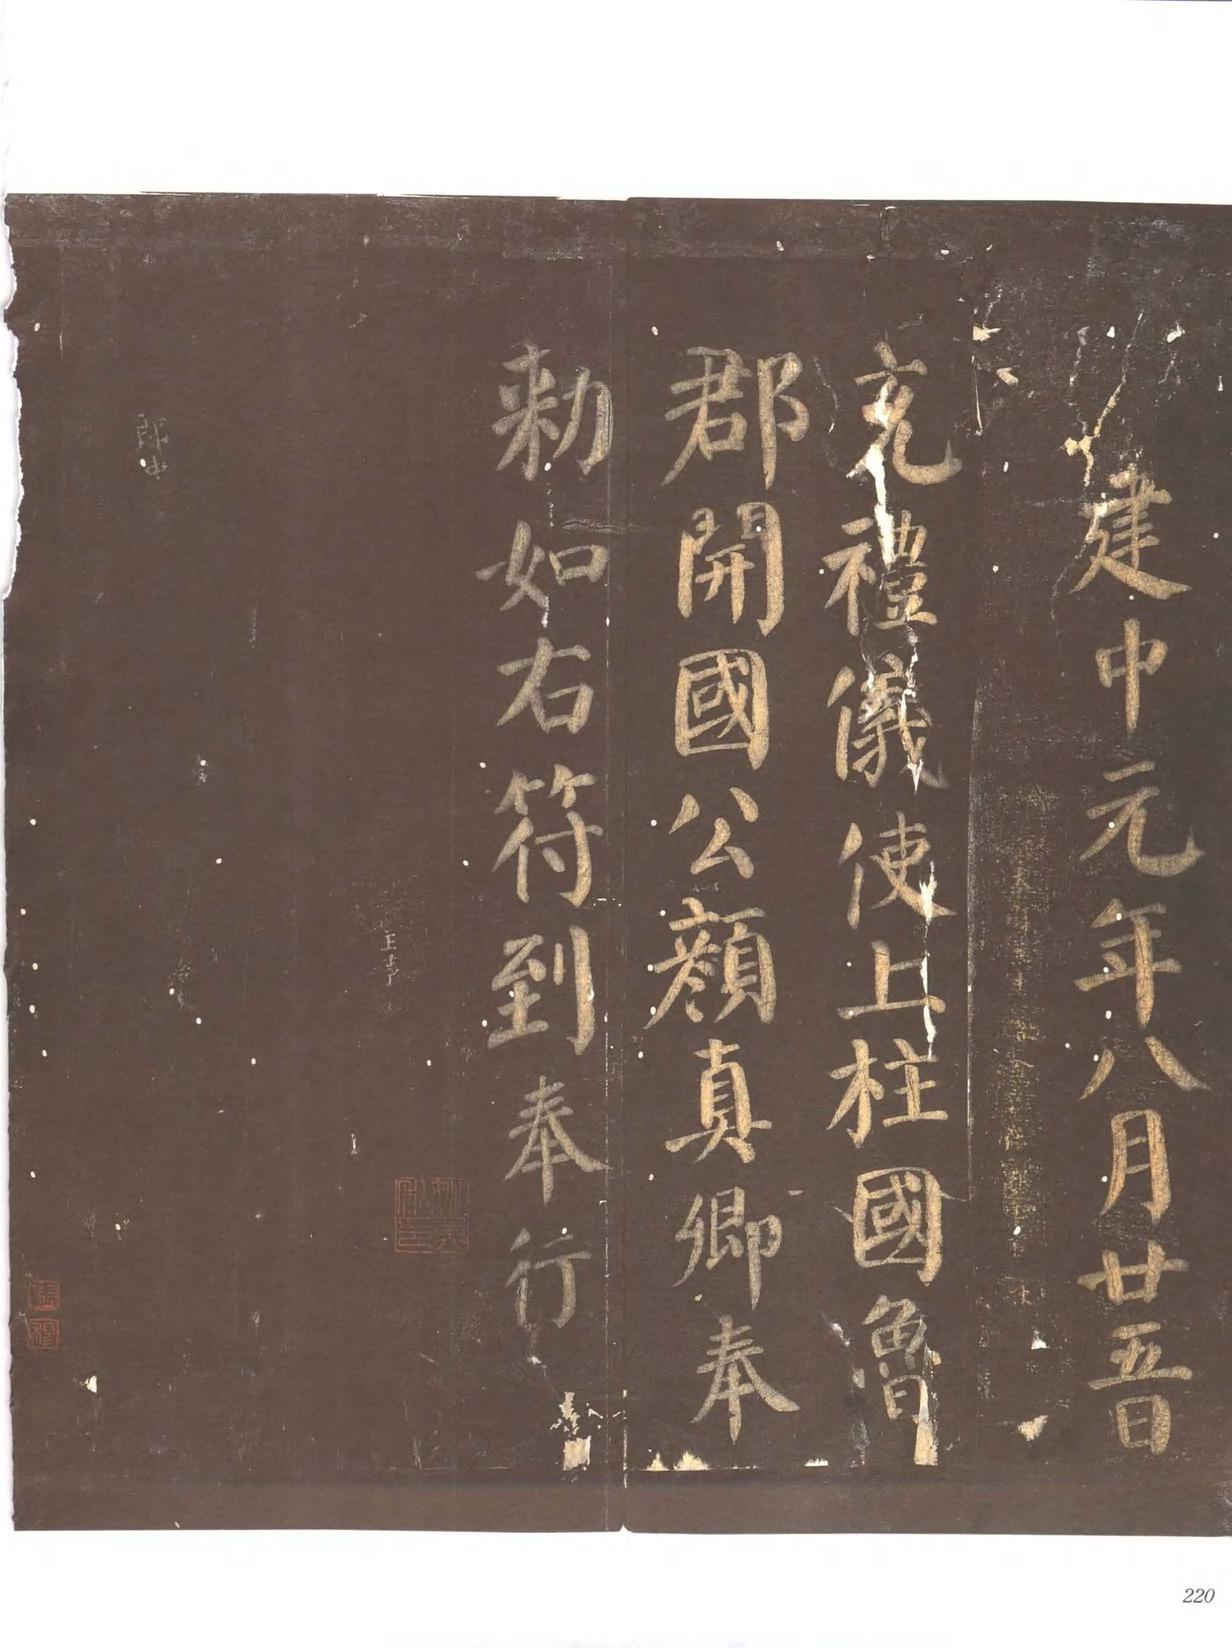 建中元年八月廿五日
充禮儀使上柱國魯
郡開國公顏真卿奉
勅如右符到奉行
220